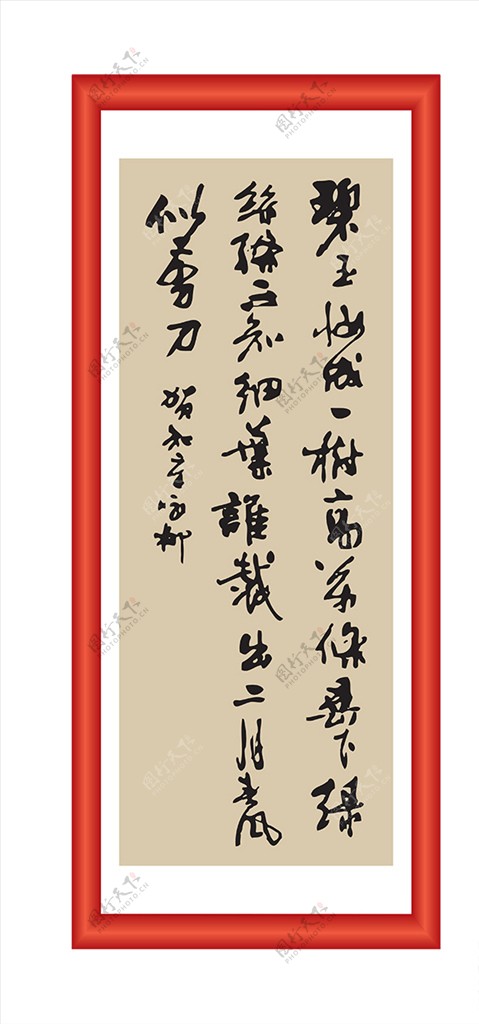 碧玉妝成一樹高萬條垂下綠
絲絛不知細葉誰裁出二月春風
似剪刀
賀知章詠柳
图行天下
PHOTOPHOTO.CN